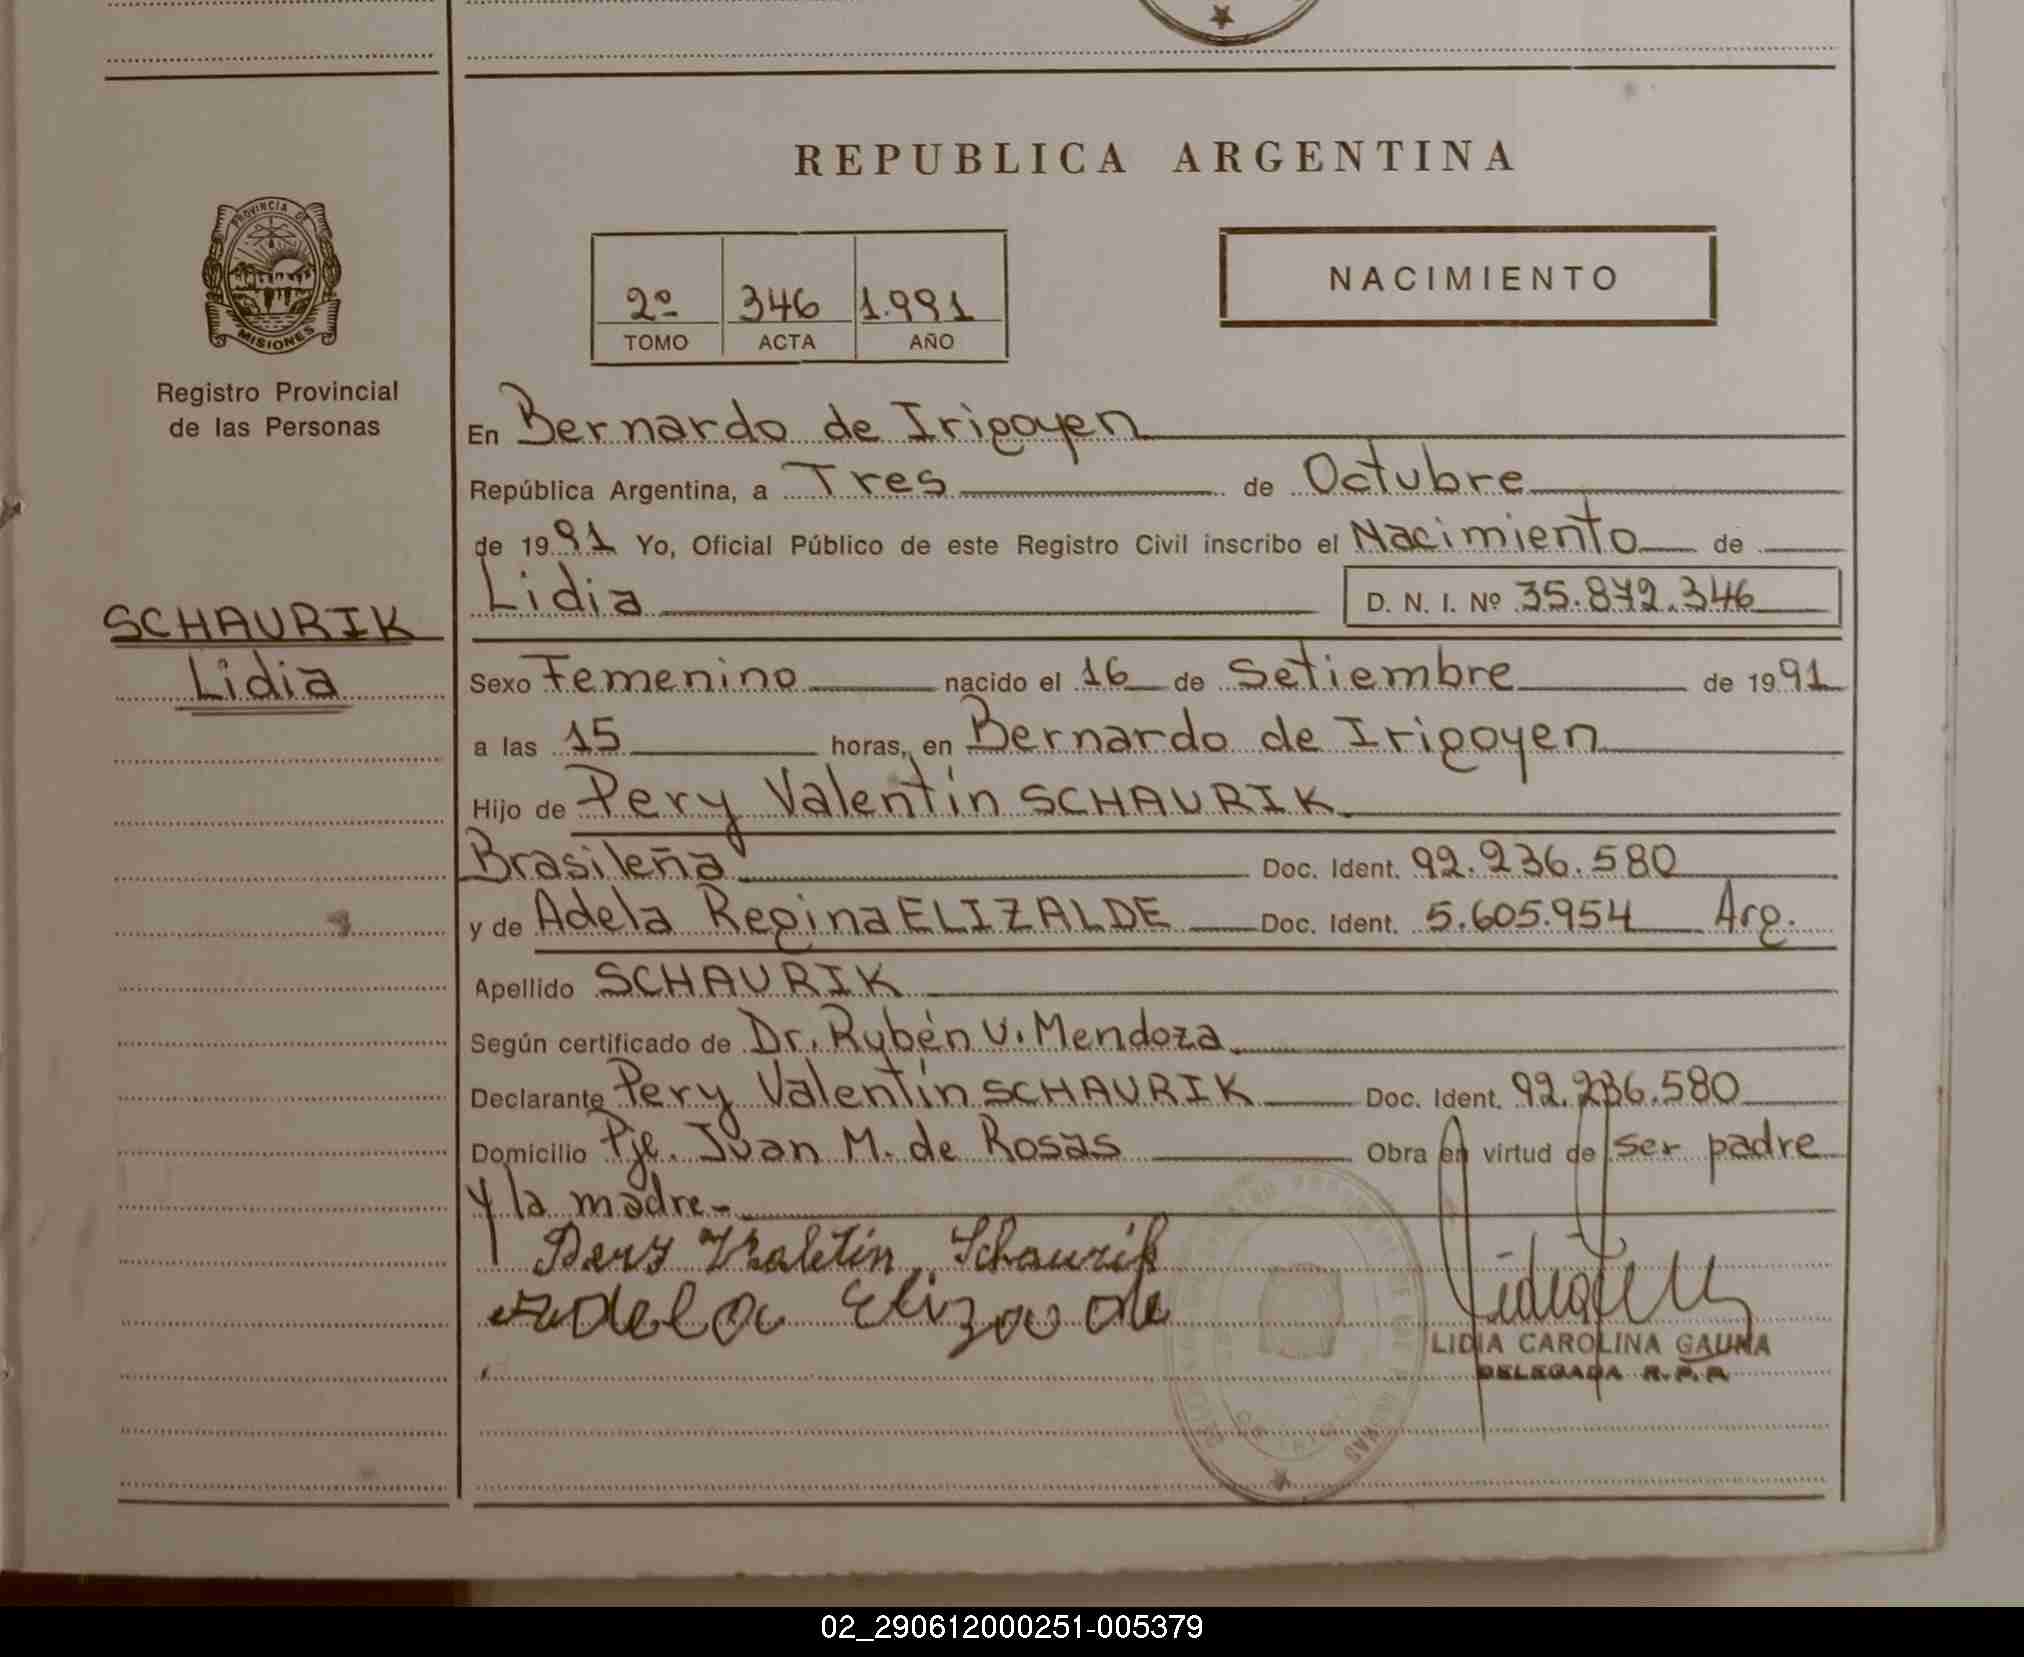 REPUBLICA ARGENTINA
PROVINCIA DE
MISIONES
Registro Provincial
de las Personas
2º 346 1.991
TOMO ACTA AÑO
NACIMIENTO
En Bernardo de Irigoyen
República Argentina, a Tres de Octubre
de 1991 Yo, Oficial Público de este Registro Civil inscribo el Nacimiento de
Lidia D. N. I. Nº 35.872.346
SCHAURIK
Lidia
Sexo Femenino nacido el 16 de Setiembre de 1991
a las 15 horas, en Bernardo de Irigoyen
Hijo de Pery Valentín SCHAURIK
Brasileña Doc. Ident. 92.236.580
y de Adela Regina ELIZALDE Doc. Ident. 5.605.954 Arg.
Apellido SCHAURIK
Según certificado de Dr. Rubén V. Mendoza
Declarante Pery Valentín SCHAURIK Doc. Ident. 92.236.580
Domicilio Pje. Juan M. de Rosas Obra en virtud de ser padre
y la madre.-
Pery Valetin Schaurik
Adela Elizalde
LIDIA CAROLINA GAUNA
DELEGADA R.P.P.
02_290612000251-005379